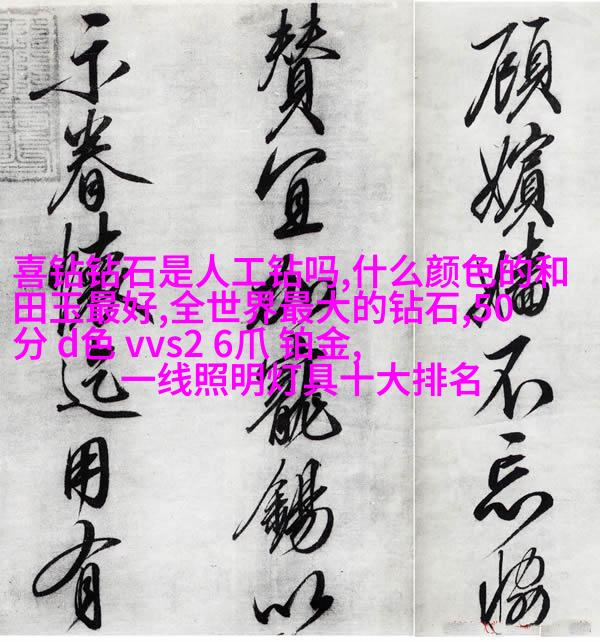 喜钻钻石是人工钻吗,什么颜色的和
田玉最好,全世界最大的钻石,50
分 d色 vvs2 6爪 铂金,
一线照明灯具十大排名
顧嬪嬙不忘
贊宜加寵錫以
示眷懷迄用有